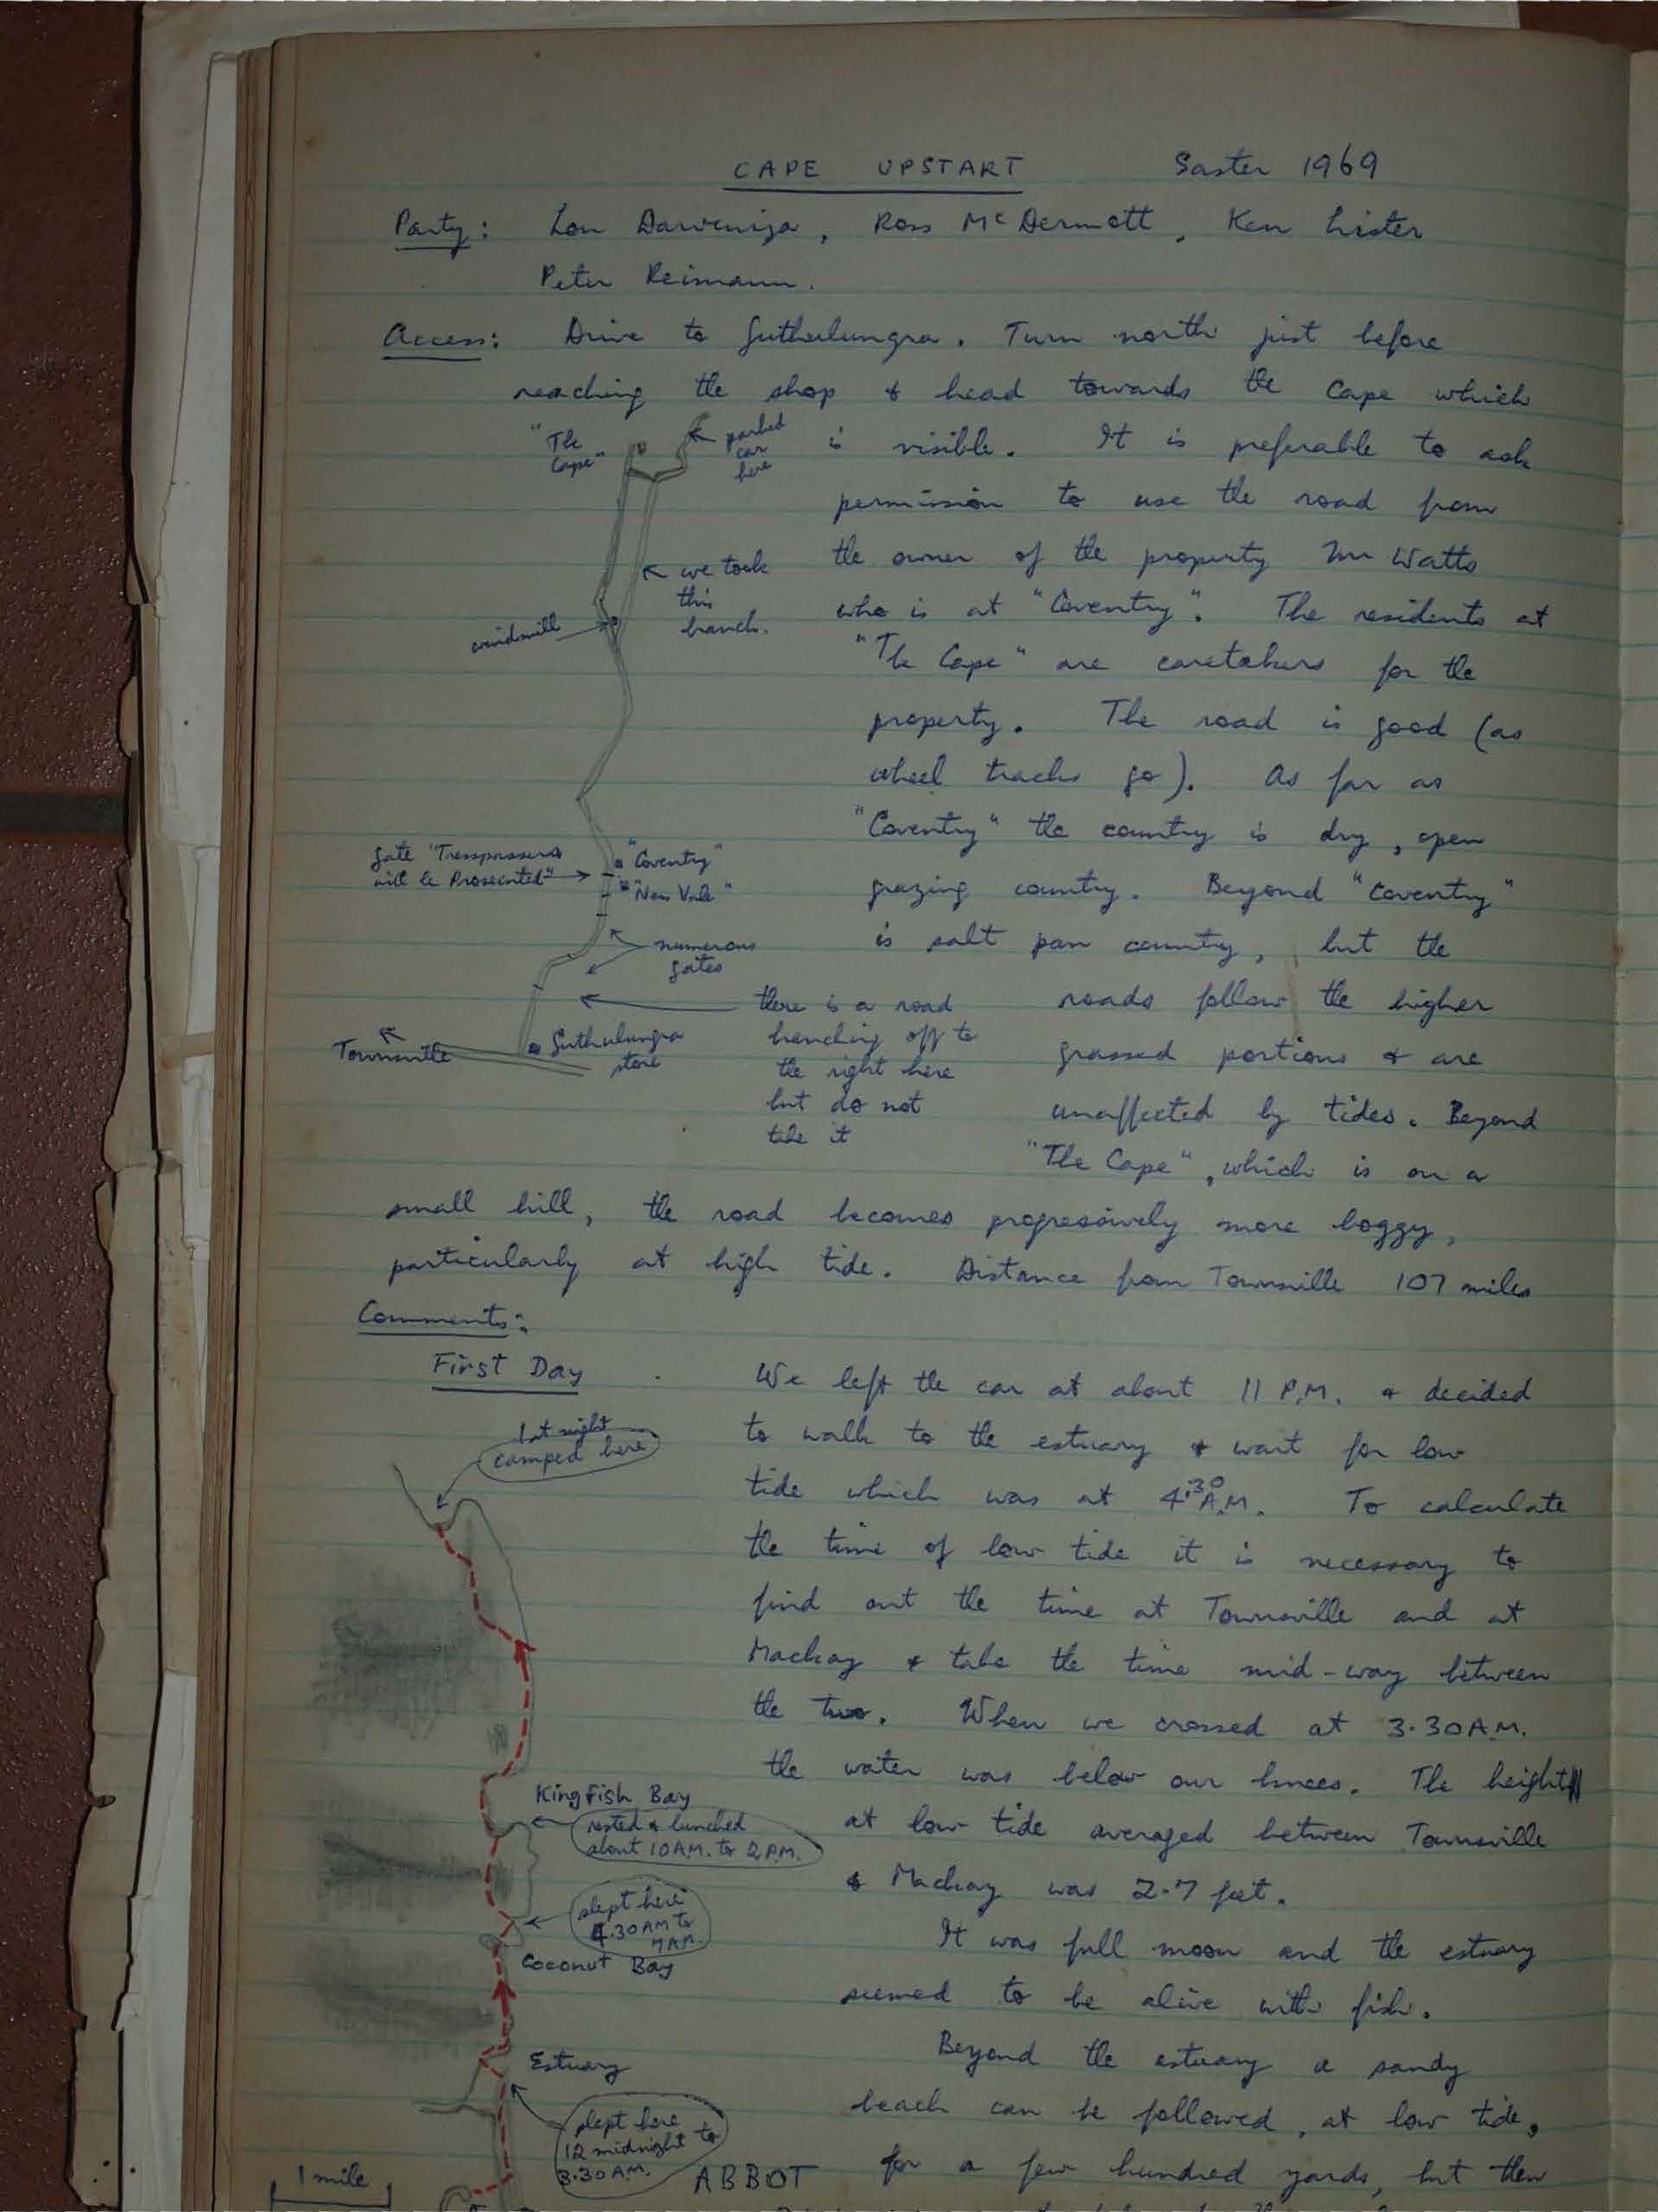 CAPE UPSTART Easter 1969
Party: Lou Darveniza, Ross McDermott, Ken Lister
Peter Reimann.
Access: Drive to Guthulungra. Turn north just before
reaching the shop & head towards the Cape which
"The
Cape"
parked
car
here
is visible. It is preferable to ask
permission to use the road from
the owner of the property Mr Watts
← we took
this
branch.
windmill
who is at "Coventry". The residents at
"The Cape" are caretakers for the
property. The road is good (as
wheel tracks go). As far as
"Coventry" the country is dry, open
gate "Tresspassers
will be Prosecuted"
"Coventry"
"New Vale"
grazing country. Beyond "Coventry"
is salt pan country, but the
numerous
gates
there is a road
branching off to
the right here
but do not
take it
roads follow the higher
Townsville
Guthulungra
store
grassed portions & are
unaffected by tides. Beyond
"The Cape", which is on a
small hill, the road becomes progressively more boggy,
particularly at high tide. Distance from Townsville 107 miles
Comments:
First Day
We left the car at about 11 P.M. & decided
1st night
camped here
to walk to the estuary & wait for low
tide which was at 4.30 A.M. To calculate
the time of low tide it is necessary to
find out the time at Townsville and at
Mackay & take the time mid-way between
the two. When we crossed at 3.30 A.M.
the water was below our knees. The height
Kingfish Bay
rested & lunched
about 10 A.M. to 2 P.M.
at low tide averaged between Townsville
& Mackay was 2.7 feet.
slept here
4.30 AM to
7 AM.
Coconut Bay
It was full moon and the estuary
seemed to be alive with fish.
Beyond the estuary a sandy
Estuary
beach can be followed, at low tide,
slept here
12 midnight to
3.30 A.M.
1 mile
ABBOT
for a few hundred yards, but then